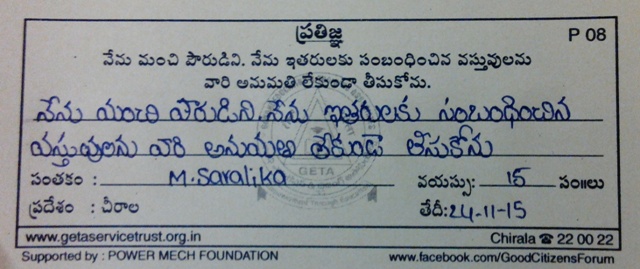 ప్రతిజ్ఞ
P 08
నేను మంచి పౌరుడిని. నేను ఇతరులకు సంబంధించిన వస్తువులను
వారి అనుమతి లేకుండా తీసుకోను.
నేను మంచి పౌరుడిని నేను ఇతరులకు సంబంధించిన
వస్తువులను వారి అనుమతి లేకుండ తీసుకోను
GETA
సంతకం : M.Saralika వయస్సు: 15 సం॥లు
ప్రదేశం : చీరాల తేదీ: 24-11-15
www.getaservicetrust.org.in Chirala ☎ 22 00 22
Supported by : POWER MECH FOUNDATION www.facebook.com/GoodCitizensForum